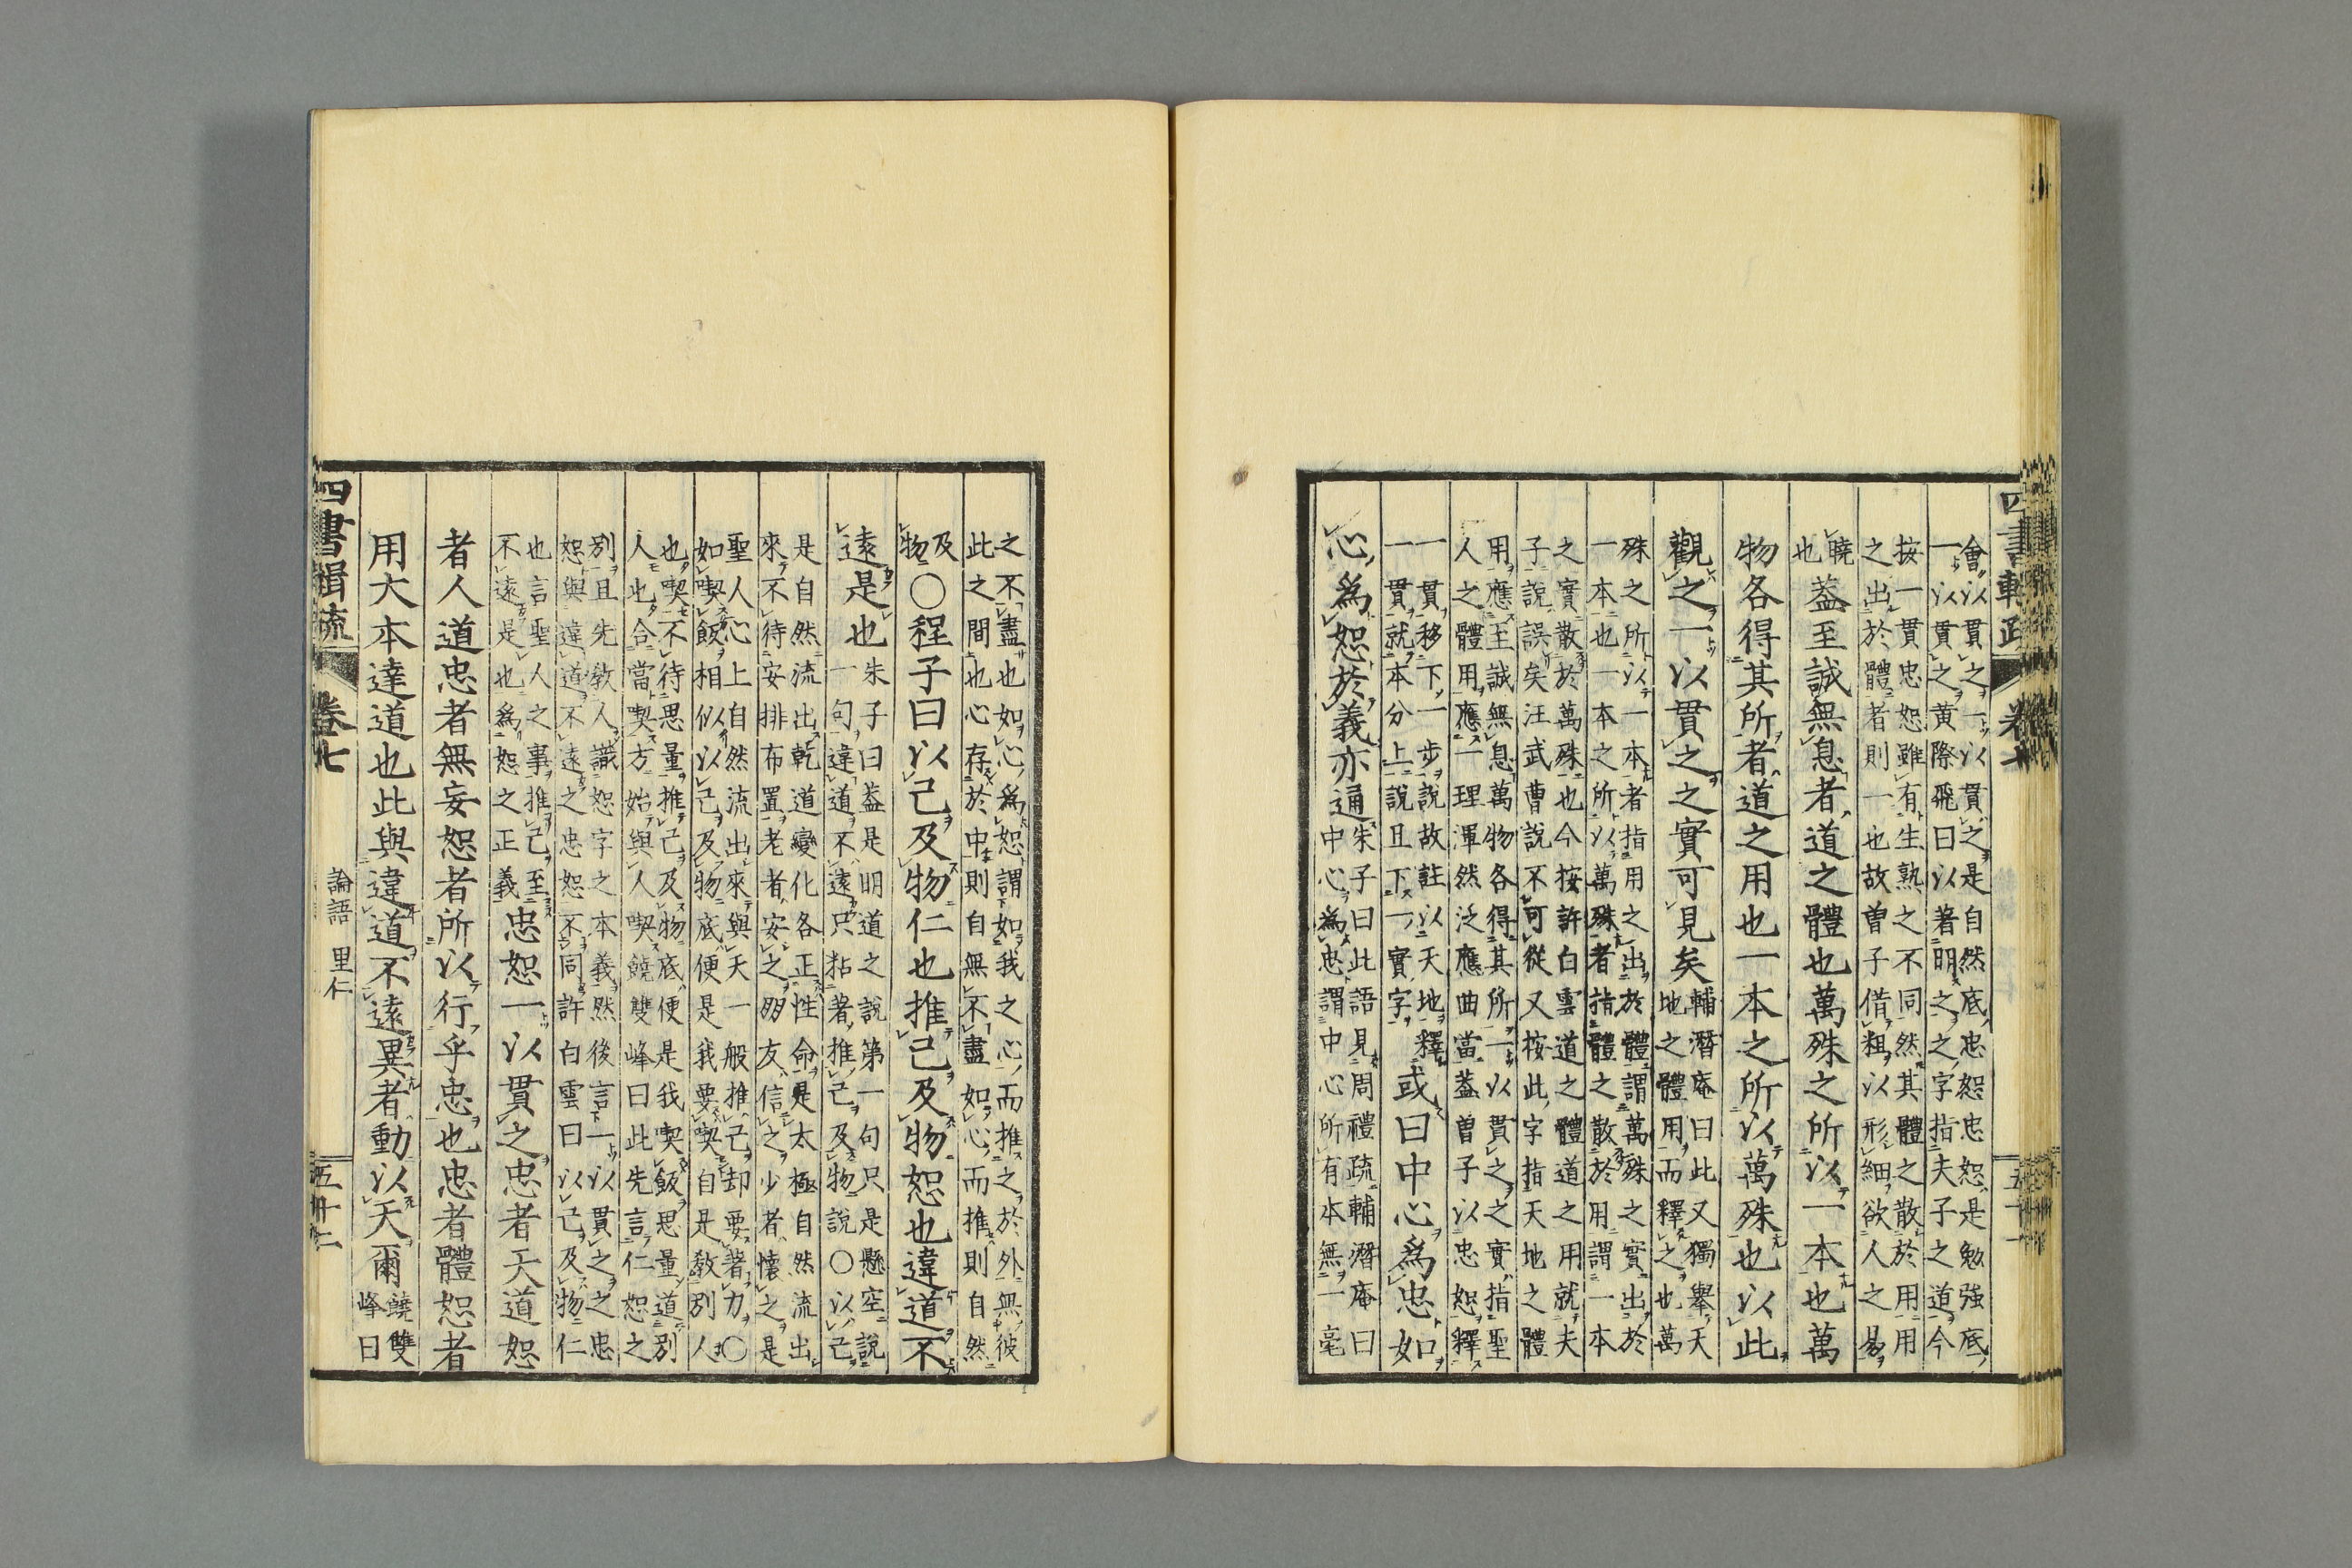 會以貫之一以貫之是自然底忠恕忠恕是勉强底
一以貫之黄際飛曰以著明之之字指夫子之道今
按一貫忠恕雖有生熟之不同然其體之散於用用
之出於體者則一也故曽子借粗以形細欲人之易
曉
也
蓋至誠無息者道之體也萬殊之所以一本也萬
物各得其所者道之用也一本之所以萬殊也以此
觀之一以貫之之實可見矣
輔潛庵曰此又獨舉天
地之體用而釋之也萬
殊之所以一本者指用之出於體謂萬殊之實出於
一本也一本之所以萬殊者指體之散於用謂一本
之實散於萬殊也今按許白雲道之體道之用就夫
子說誤矣汪武曹說不可從又按此字指天地之體
用應至誠無息萬物各得其所一以貫之之實指聖
人之體用應一理渾然泛應曲當蓋曽子以忠恕釋
一貫移下一步說故註以天地釋
一貫就本分上說且下一實字
或曰中心爲忠如
心爲恕於義亦通
朱子曰此語見周禮疏輔潛庵曰
中心爲忠謂中心所有本無一毫
之不盡也如心爲恕謂如我之心而推之於外無彼
此之間也心存於中則自無不盡如心而推則自然
及
物
○程子曰以己及物仁也推己及物恕也違道不
遠是也
朱子曰蓋是明道之說第一句只是懸空說
一句違道不遠只粘著推己及物說○以己
是自然流出乾道變化各正性命是太極自然流出
來不待安排布置老者安之朋友信之少者懷之是
聖人心上自然流出來與天一般推己却要著力○
如喫飯相似以己及物底便是我要喫自是教別人
也喫不待思量推己及物底便是我喫飯思量道別
人也合當喫方始與人喫饒雙峰曰此先言仁恕之
別且先教人識恕字之本義然後言一以貫之之忠
恕與違道不遠之忠恕不同許白雲曰以己及物仁
也言聖人之事推己至
不遠是也爲恕之正義
忠恕一以貫之忠者天道恕
者人道忠者無妄恕者所以行乎忠也忠者體恕者
用大本達道也此與違道不遠異者動以天爾
饒雙
峰曰
四書輯疏 卷七 論語 里仁 五十二